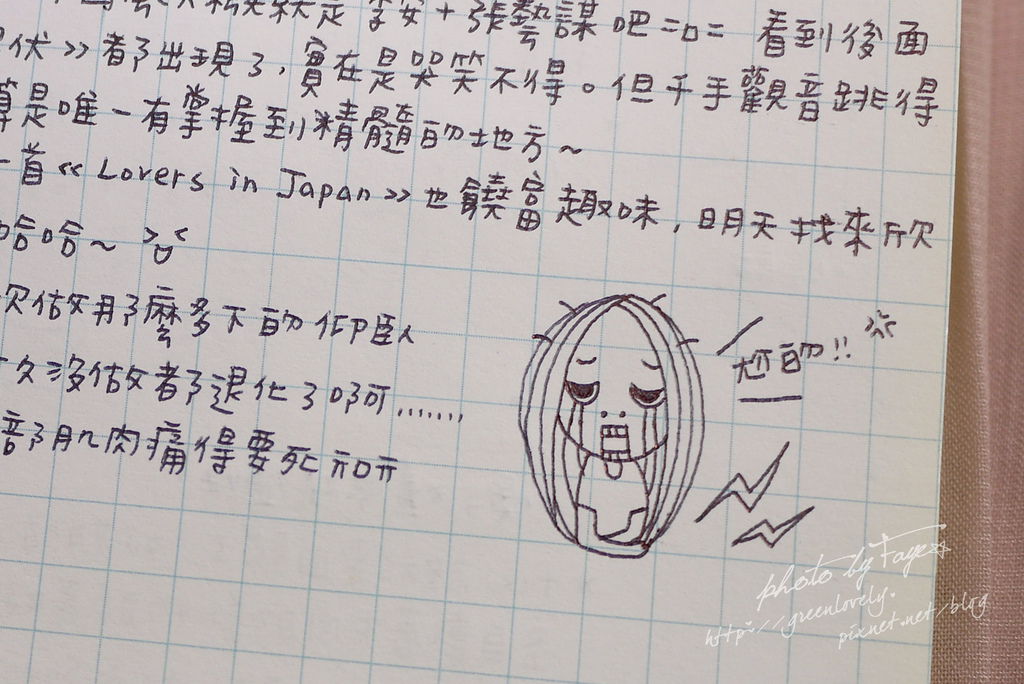 就是李安+張藝謀吧=口= 看到後面
伏》都出現了,實在是哭笑不得。但千手觀音跳得
算是唯一有掌握到精髓的地方~
一首《Lovers in Japan》也饒富趣味,明天找來欣
哈哈~ >口<
次做那麼多下的仰臥
久沒做都退化了啊.......
部肌肉痛得要死 ㄞ口ㄞ
尬的!!
photo by Faye
http://greenlovely.
pixnet.net/blog